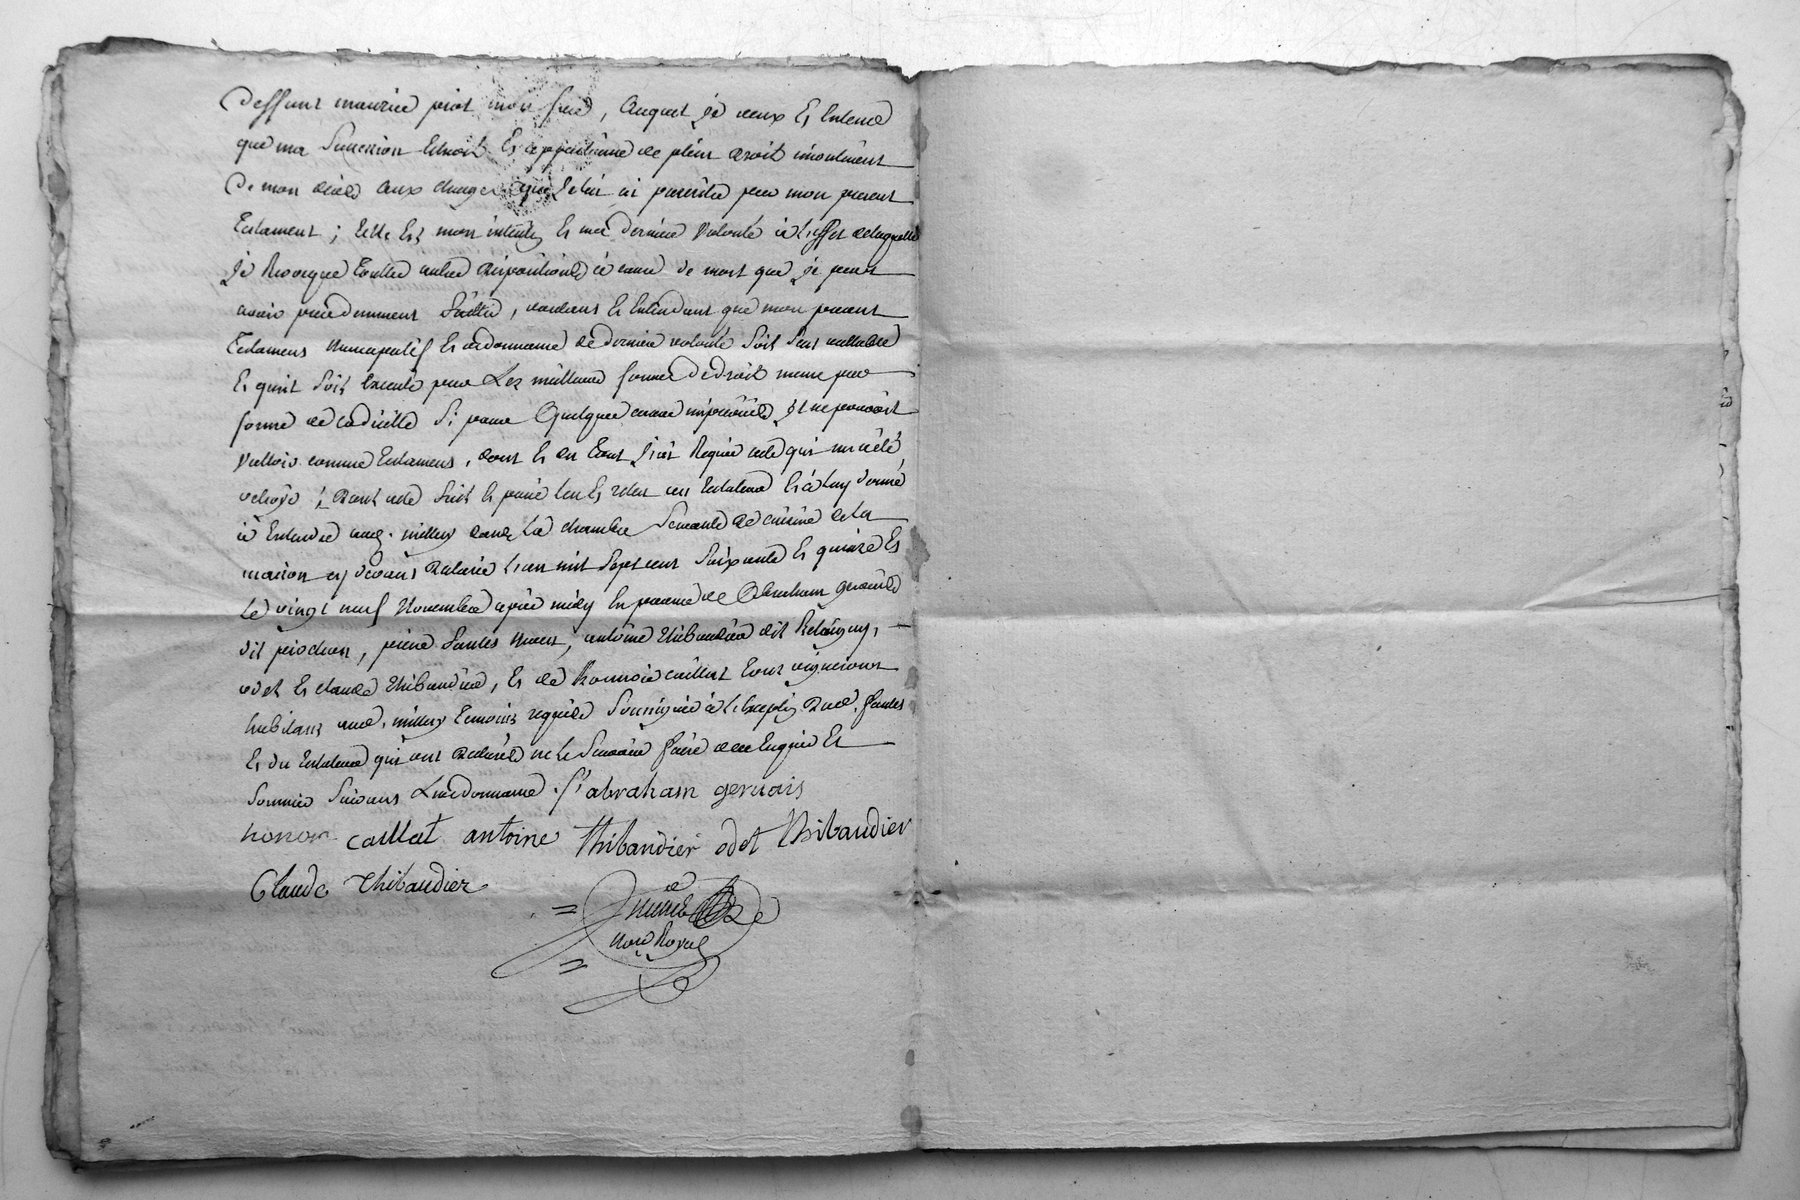 deffunt maurice piot mon frere, Auquel je veux Et Entend
que ma Succession Echoit Et appartienne de plein droit incontinent
De mon deces aux charges que j'ai cy prescrites par mon present
Testament ; telle Est mon intention Et ma derniere Volonté à l'effet de laquelle
je Revoque Touttes autres dispositions à cause de mort que je peux
avoir precedemment faittes, voulans Et Entendant que mon present
Testament Nuncupatif Et ordonnance de derniere volonté Soit Seul vallable
Et qu'il Soit Executé pour Les meilleures formes De Droit meme par
forme de Codicille Si pour Quelque cause impreveüe il ne pouvoit
Valloir comme Testament, dont Et du tout j'ai Requis acte qui m'a eté
octroyé ; Dont acte fait Et passé leu Et releu au Testateur Et à Luy donné
à Entendre aud. millery dans La chambre Servante de cuisine de La
maison cy devant Declarée L'an mil Sept cent Soixante Et quinze Et
Le vingt neuf Novembre après midy En presence de Abraham gervais
dit piochon, pierre fautes, antoine thibaudier dit
odet Et claude thibaudier, Et de Honnoré caillat tous vignerons
habitans aud. millery temoins requis Soussignés à L'exception Dud. fautes
Et du testateur qui ont Declaré ne le Scavoir faire de ce Enquis Et
Sommés Suivant L'ordonnance. S. abraham gervais
honor caillat antoine thibaudier odet thibaudier
Claude thibaudier
No.re Royal